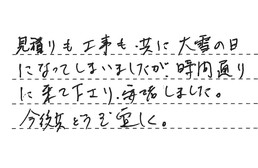 見積りも工事も、共に大雪の日
になってしまいましたが時間通り
に来て下さり、安心しました。
今後共どうぞ宜しく。